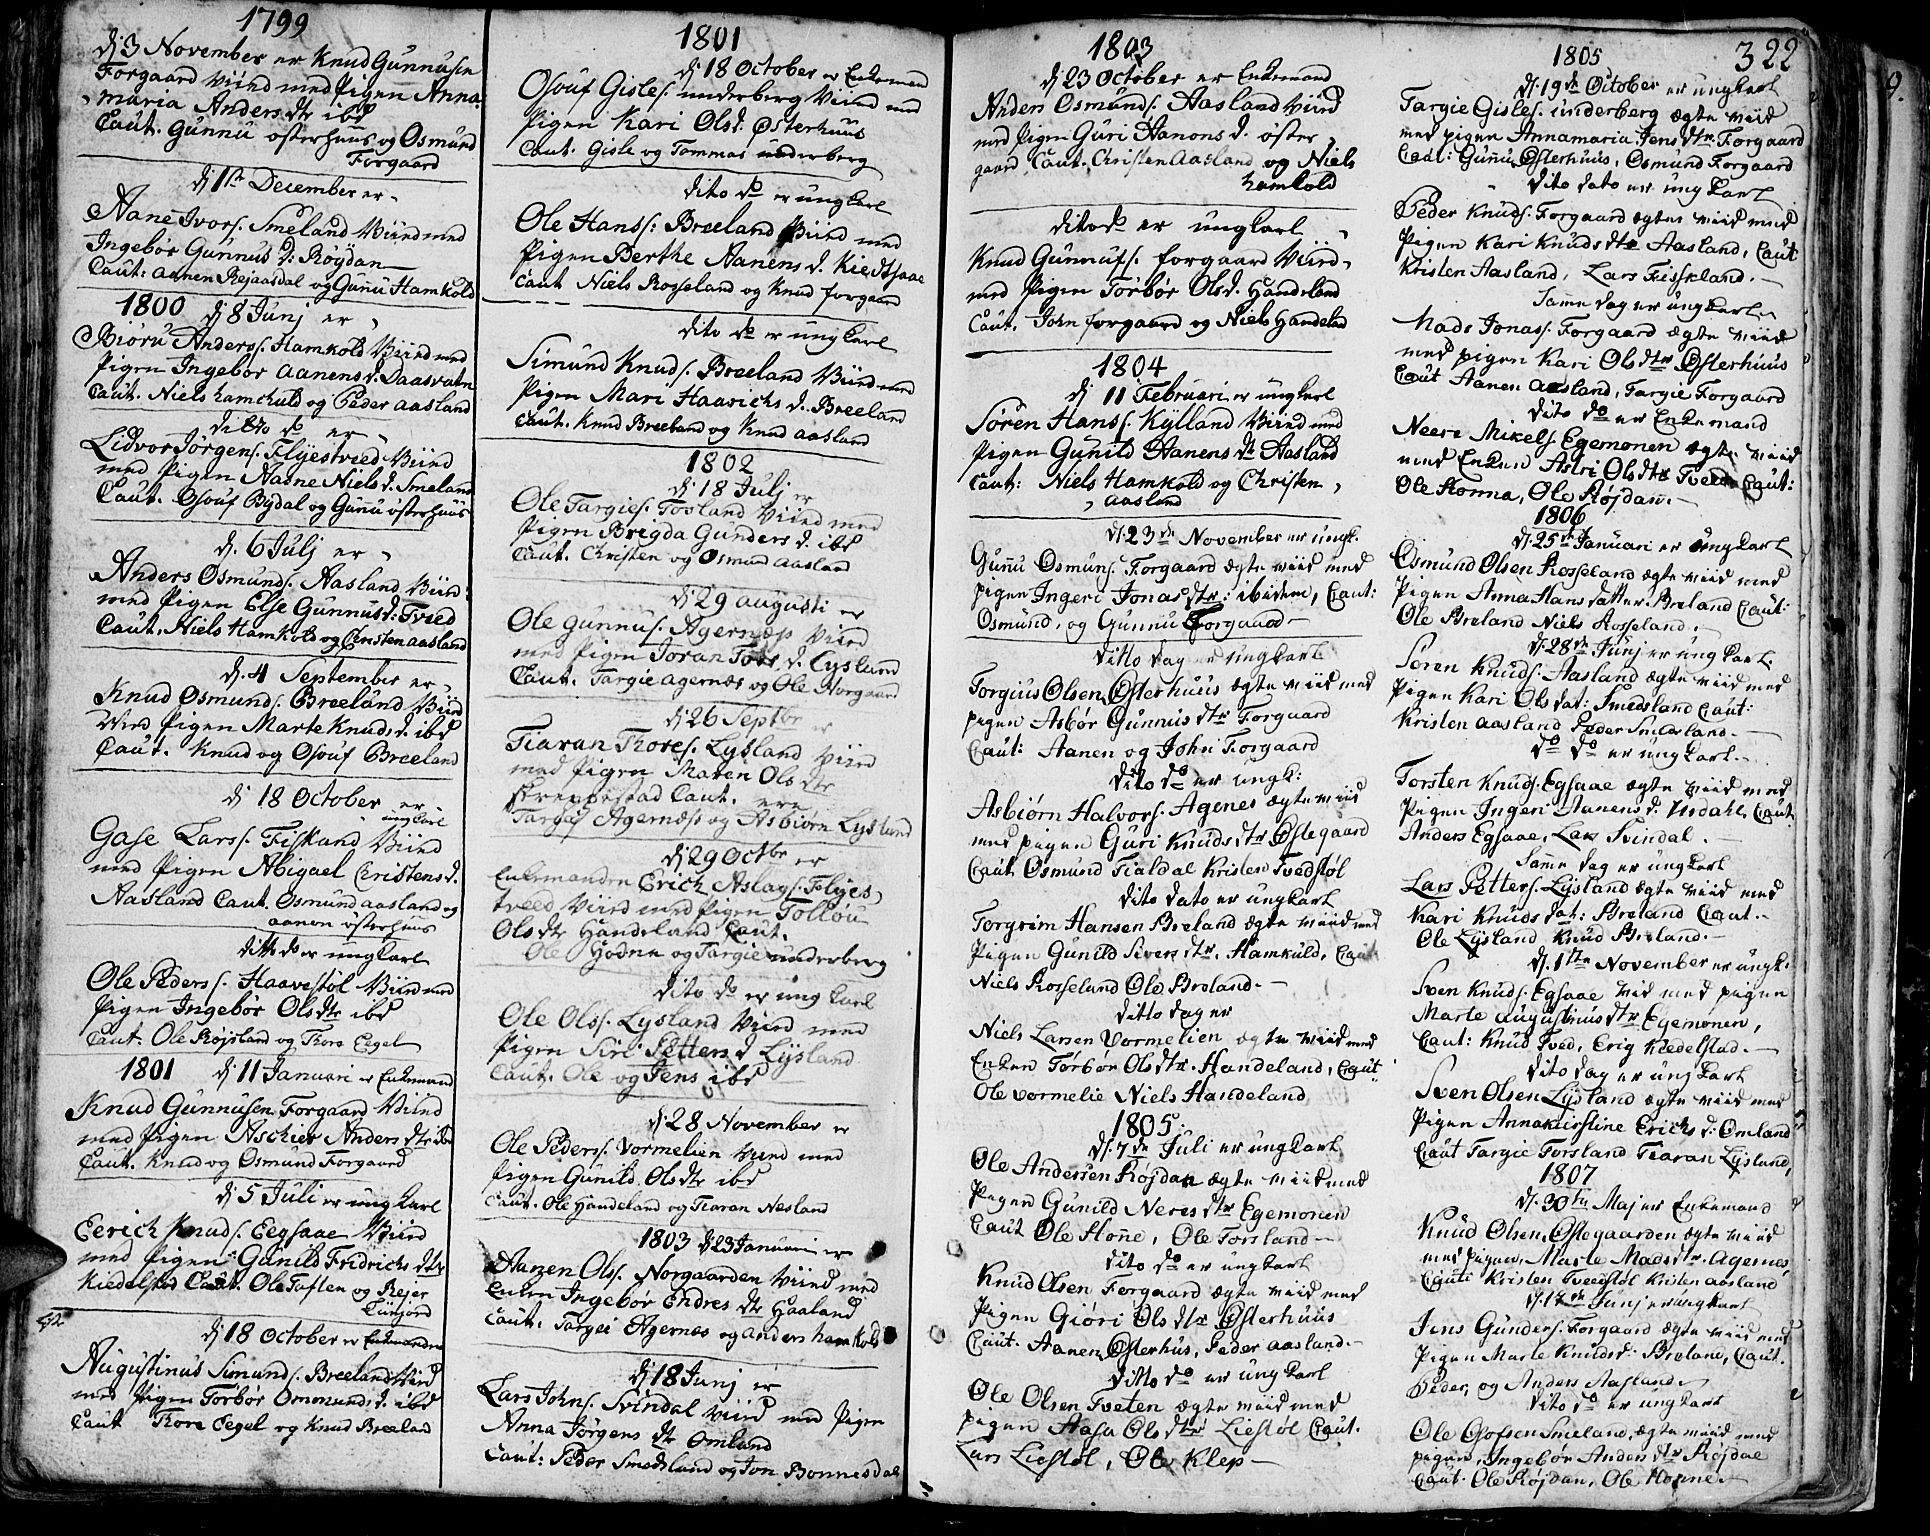 1799
dj 3 November er Knud Gunnusen
Forgaard Viird med Pigen Anna
maria Anders dtr ibd
Caut. Gunnu østerhuus og Osmund
Forgaard
dj 1ste December er
Aane Ivors. Smeland Viird med
Ingebør Gunnus d: Røÿdan
Caut: Aanen Rejaasdal og Gunu Hamkold
1800 dj 8 Junj er
Biøru Anders. Hamkold Viird med
Pigen Ingebor Aanens d. Daasvatn
Caut. Niels hamchuld og Peder Aasland
ditto do er
Lidvor Jørgens. Flÿestvied Viird
med Pigen Aasne Niels d. Smeland
Caut. Osouf Bÿdal og Gunu østerhuus
dj. 6 Julj er
Anders Osmunds. Aasland Viird
med Pigen Else Gunnus d: Tvied
Caut. Niels Hamkold og Christen Aasland
dj. 4 September er
Knud Osmunds. Breeland Viird
Viird Pigen Marte Knuds d. ibd
Caut. Knud og Osouf Breeland
dj 18 October er
ungkarl
Gase Lars s. Fiskland Viird
med Pigen Abigael Christens d.
Aasland Caut. Osmund aasland og
aanen østerhuus
ditto do er ungkarl
Ole Peders s. Haavestøl Viird med
Pigen Ingebør Ols dtr ibd
Caut: Ole Røjsland og Thore Eegel
1801 dj 11 Januari er Enkemand
Knud Gunnusen Forgaard Viird
med Pigen Aschier Anders dtr ibd
Caut. Knud og Osmund Forgaard
dj 5 Juli er ungkarl
Eerich Knuds. Eegsaae Viird
med Pigen Gunild Fridrichs dtr
Kiedelsted Caut. Ole Toften og Rejer
dj 18 October er Enkemand
Augustinus Simunds. Breeland Viird
med Pigen Torbør Ommunds d. ibd
Caut Thore Eegel og Knud Breeland
1801
dj 18 October er Enkemand
Osouf Gisles. underberg Viird med
Pigen Kari Olsd. Østerhuus
Caut. Gisle og Tommas underberg
dito do er ungkarl
Ole Hans s: Breeland Viird med
Pigen Berthe Aanens d. Kiedtsaae
Caut Niels Rosseland og Knud forgaard
dito do er ungkarl
Simund Knuds. Breeland Viird med
Pigen Mari Haavichs d. Breeland
Caut. Knud Breeland og Knud aasland
1802
dj 18 Julj er
Ole Targies. Fosland Viird med
Pigen Brigda Gunders d. ibd
Caut. Christen og Osmund aasland
dj 29 augusti er
Ole Gunnus. Agernæs Viird
med Pigen Joran Tors d. Lysland
Caut. Targie agernæs og Ole Norgaard
dj 26 Septbr er
Tiaran Thores. Lysland Viird
med Pigen Maren Ols dtr
Caut.
Targie Agernæss og Asbiørn Lysland
dj 29 Octbr er
Enkemanden Erich Aslags. Flÿes
tveed Viird med Pigen Tollou
Ols dtr Handeland Caut.
Ole Hodne og Targie underberg
Dito do er ung karl
Ole Ols s. Lysland Viird med
Pigen Siri Petters d Lÿsland
Caut. Ole og Jens ibd
dj 28 November er
Ole Peders s. Vormelien Viird med
Pigen Gunild. Ols dtr ibd
Caut. Ole Handeland og Tiaran Nesland
1803 dj 23 Januari er
Aanen Ols s. Norgaarden Viird med
Enken Ingebør Endres dtr Haaland
Caut. Targei Agernæs og anders hamkold
dj 18 Junj er
Lars Johns. Svindal Viird med Pigen
Anna Jørgens dtr Omland
Caut: Peder Smedsland og Jon Bonnesdal
1803
dj 23 October er Enkemand
Anders Osmunds. Aasland Viird
med Pigen Guri Aanons d. øster
gaard Caut. Christen Aasland og Niels
hamkold
dito do er ungkarl
Knud Gunnufs. forgaard Viird
med Pigen Torbør Olsd. Handeland
Caut. John forgaard og Niels Handeland
1804
dj 11 Februari er ungkarl
Søren Hans s. Kÿlland Viird med
Pigen Gunild Aanens dtr Aasland
Caut: Niels Hamkold og Christen
aasland
dj. 23de November er ungk.
Gunu Osmuns. Forgaard ægte viid med
pigen Ingeri Jonas dtr: ibidem, Caut:
Osmund, og Gunnu Forgaard
Ditto dag er ungkarl
Torgius Olsen Østerhuus ægte viid med
pigen Asbør Gunnus dtr Forgaard
Caut: Aanen og John Forgaard
Dito do er ungk:
Asbiørn Halvors. Agenes ægte viid
med pigen Guri Knuds dtr Østegaard
Caut Osmund Tialdal Kristen Tvedstøl
Dito dato er ungkarl
Torgrim Hansen Breland ægte viid med
Pigen Gunild Sivers dtr. Hamkuld, Caut
Niels Rosseland Ole Breland.
Ditto dag er
Niels Larsen Vormelien ægte viid med
Enken Torbør Ols dtr. Handeland, Caut
Ole Vormelie Niels Handeland
1805:
dj. 7de Juli er ungkarl
Ole Andersen Røjdan ægte viid med
Pigen Gunild Neres dtr Egemonen
Caut Ole Hone, Ole Forsland
Dito do er ungkarl
Knud Olsen Forgaard ægte viid med
Pigen Giøri Ols dtr Østerhuus
Caut. Aanen Østerhus, Peder aasland.
Ditto do er ungkarl
Ole Olsen Tveten ægte viid med
pigen Aasa Ols dtr Liestøl Caut.
Lars Liestøl, Ole Klep
1805
322
dj. 19de October er ungkarl
Targie Gisles. underberg ægte viid
med pigen Annamaria Jens dtr. Forgaard
Caut: Gunu Østerhuus, Osmund Forgaard
Dito dato er ungkarl
Peder Knuds. Forgaard ægte viid med
Pigen Kari Knuds dtr Aasland, Caut
Kristen Aasland, Lars Fiskland.
Samme dag er ungkarl
Mads Jonas s. Forgaard ægte viid
med pigen Kari Ols dtr Østerhuus
Caut Aanen aasland, Targie Forgaard
Dito do er Enkemand
Neere Mikels Egemonen ægte viid
med Enken Astri Ols dtr Tveed Caut:
Ole Honna, Ole Røjdan.
1806
dj. 25de Januari er ungkarl
Osmund Olsen Rosseland ægte viid med
Pigen Anna Hans datter Breland Caut:
Ole Breland Niels Rosseland.
dj. 28de Junj er ungkarl.
Søren Knuds. Aasland ægte viid med
Pigen Kari Ols dat: Smedsland Caut:
Kristen aasland Peder Smedsland.
do do er ungkarl.
Torsten Knuds. Egsaae ægte viid med
Pigen Ingeri Aanens d. Usdahl, Caut
Anders Egsaae, Lars Svindal.
Samme dag er ungkarl
Lars Petters. Lysland ægte viid med
Kari Knuds dat: Breland Caut.
Ole Lysland Knud Breland.
dj. 1ste November er ungk.
Sven Knuds. Egsaae viid med pigen
Marte Augustinus dtr Egemonen,
Caut: Knud Tved, Erig Kiedelstad.
Dito dag er ungkarl
Sven Olsen Lÿsland ægte viid med
Pigen Annakirstine Erichs d: Omland
Caut Targie Forsland Tiaran Lysland,
1807
dj. 30te Maj er Enkemand
Knud Olsen Østegaarden ægte viid
med pigen, Marte Mads dtr. Agenes
Caut: Kristen Tveedstøl Kristen aasland
dj. 14de Junj er ungkarl
Jens Gunders. Forgaard ægte viid med
Pigen Marte Knuds d: Breland, Caut.
Peder, og Anders Aasland
Dito do er ungkarl
Ole Osofsen Smeland, ægte viid med
pigen, Ingebør Anders dtr Røjdae
Caut. Ole Røjdan, Ole Honne